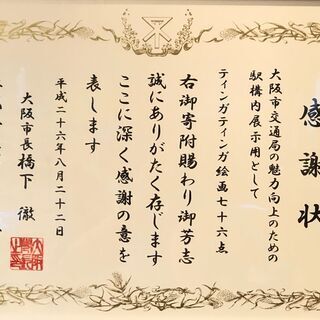 感謝状
大阪市交通局の魅力向上のための
駅構内展示用として
ティンガティンガ絵画七十六点
右御寄附賜わり御芳志
誠にありがたく存じます
ここに深く感謝の意を
表します
平成二十六年八月二十二日
大阪市長橋下 徹